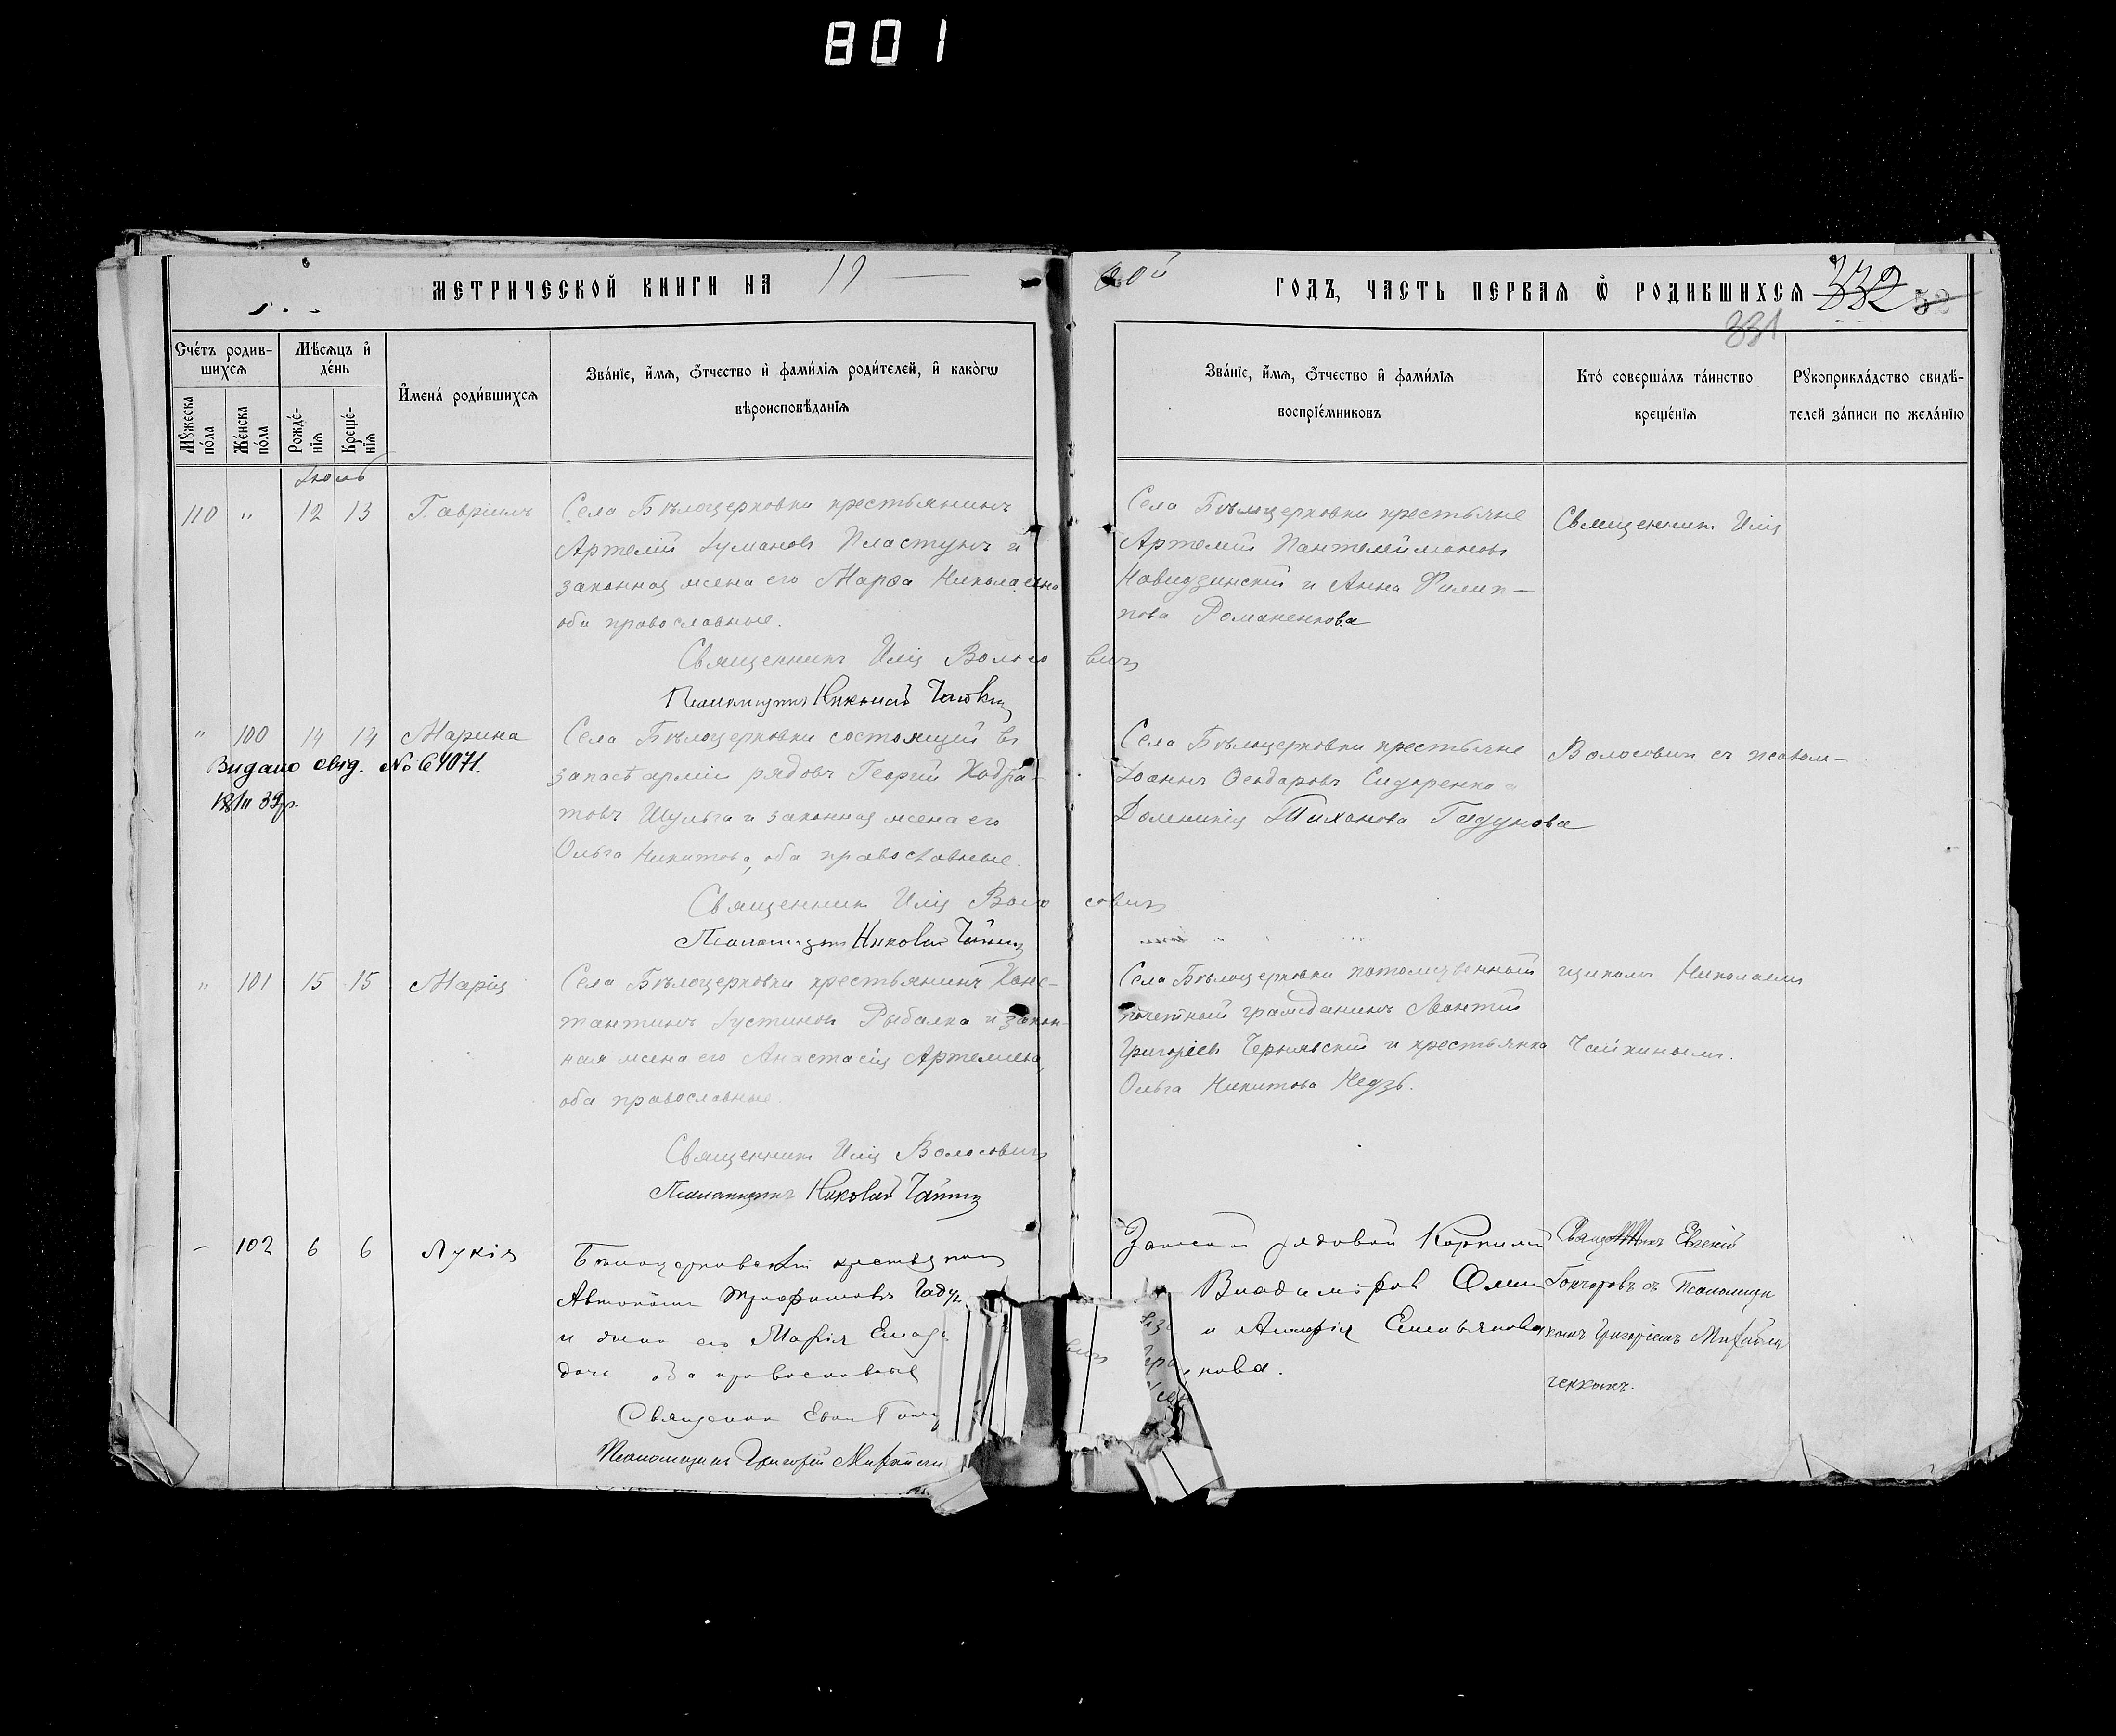 801
МЕТРИЧЕСКОЙ КНИГИ НА 19
00й ГОДЪ, ЧАСТЬ ПЕРВАЯ Ѡ РОДИВШИХСЯ 332 52
331
Счéтъ родив-
шихся
Мѣсяцъ и҆
дéнь
Мꙋжеска
пóла
Жéнска
пóла
Рождé-
нія
Крещé-
нія
И҆мена́ роди́вшихся
Зва́ніе, и҆́мя, ѻ҆́тчество и҆ фами́лія роди́телей, и҆ како́гѡ
вѣроисповѣ́данія
Зва́ніе, и҆́мя, ѻ҆́тчество и҆ фами́лія
воспріе́мниковъ
Кто́ соверша́лъ та́инство
креще́нія
Рꙋкоприкла́дство свидѣ́-
телей за́писи по жела́нію
Іюль
110 " 12 13 Гавріилъ
Села Бѣлоцерковки крестьянинъ
Артемій Іумановъ Пластунъ и
законная жена его Марѳа Николаевна
оба православные.
Священникъ Илія Волосовичъ
Псаломщикъ Николай Чайкин
Села Бѣлоцерковки крестьяне
Артемій Пантелеймоновъ
и Анна Филип-
пова Романенкова
Священник Илія
" 100 14 14 Марина
Видано свід. № 64071.
39р.
Села Бѣлоцерковки состоящій въ
запасѣ арміи рядовъ Георгій Кодра-
товъ Шульга и законная жена его
Ольга Никитова, оба православные.
Священник Илія Волосовичъ
Псаломщик Николай Чайкин
Села Бѣлоцерковки крестьяне
Іоаннъ Ѳеодоровъ Сидоренко и
Домникія Тихонова Гадунова
Волосович съ псалом-
" 101 15 15 Марія
Села Бѣлоцерковки крестьянинъ Конс-
тантинъ Іустиновъ Рыбалка и закон-
ная жена его Анастасія Артемиева,
оба православные.
Священник Илія Волосовичъ
Псаломщикъ Николай Чайкин
Села Бѣлоцерковки потомственный
почетный гражданинъ Леонтій
Григоріевъ Чернявскій и крестьянка
Ольга Никитова Недзь.
щикомъ Николаемъ
Чайкинымъ.
– 102 6 6 Лукія
Бѣлоцерковскій
Автоном Трифоновъ
и жена его Марія
оба православные
Священник
Псаломщикъ Григорій
рядовой Корнилій
Владиміров
и Емельянова
нова.
Священникъ Евгеній
Гончаровъ съ Псаломщи
комъ Григоріемъ Михайли
ченкомъ.